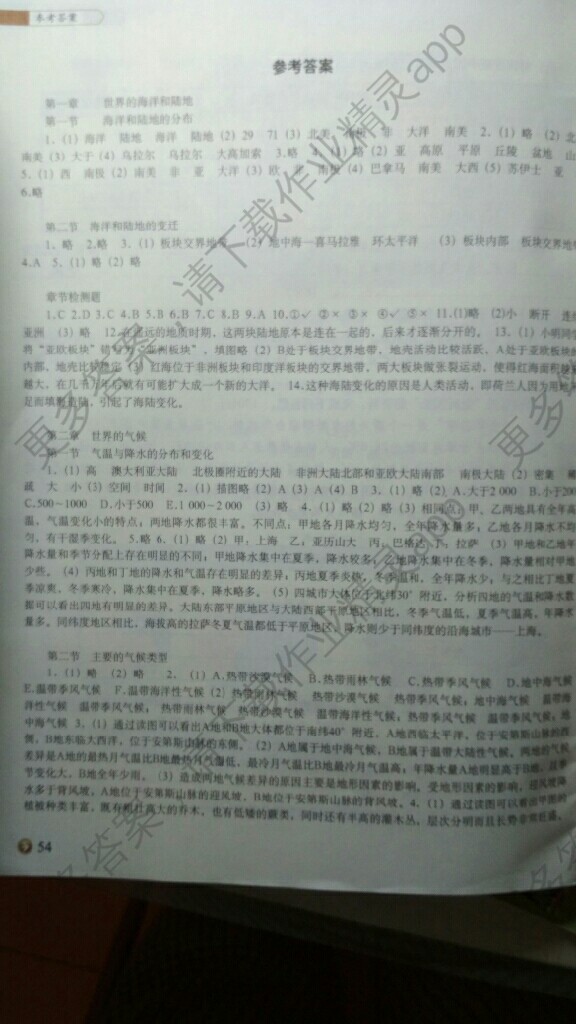 参考答案
参考答案
第一章 世界的海洋和陆地
第一节 海洋和陆地的分布
1.(1)海洋 陆地 海洋 陆地(2)29 71(3)北美 非 大洋 南美 2.(1)略(2)北
南美(3)大于(4)乌拉尔 乌拉尔 大高加索 3.略 4.(1)略(2)亚 高原 平原 丘陵 盆地 山
5.(1)西 南极(2)南美 非 亚 大洋(3)欧 非 南极(4)巴拿马 南美 大西(5)苏伊士 亚
6.略
第二节 海洋和陆地的变迁
1.略 2.略 3.(1)板块交界地带 (2)地中海—喜马拉雅 环太平洋 (3)板块内部 板块交界地
4.A 5.(1)略(2)略
章节检测题
1.C 2.D 3.C 4.B 5.B 6.B 7.C 8.B 9.A 10.①√ ②× ③× ④√ ⑤× 11.(1)略 (2)小 断开 连
亚洲 (3)略 12.在遥远的地质时期，这两块陆地原本是连在一起的，后来才逐渐分开的。 13.(1)小明同
将“亚欧板块”错写为“亚洲板块”，填图略(2)B处于板块交界地带，地壳活动比较活跃，A处于亚欧板块
内部，地壳比较稳定(3)红海位于非洲板块和印度洋板块的交界地带，两大板块做张裂运动，使得红海面积
越大，在几千万年后就有可能扩大成一个新的大洋。 14.这种海陆变化的原因是人类活动，即荷兰人因为用地
足而填海造陆，引起了海陆变化。
第二章 世界的气候
第一节 气温与降水的分布和变化
1.(1)高 澳大利亚大陆 北极圈附近的大陆 非洲大陆北部和亚欧大陆南部 南极大陆(2)密集 稀
疏 大 小(3)空间 时间 2.(1)描图略(2)A(3)A(4)B 3.(1)略(2)A.大于2 000 B.小于200
C.500~1000 D.小于500 E.1 000~2 000(3)略 4.(1)略(2)略(3)相同点：甲、乙两地具有全年高
温，气温变化小的特点，两地降水都很丰富。不同点：甲地各月降水均匀，全年降水量多，乙地各月降水不均
匀，有干湿季变化。 5.略 6.(1)略(2)甲：上海 乙，亚历山大 丙：巴格达 丁，拉萨 (3)甲地和乙地年
降水量和季节分配上存在明显的不同：甲地降水集中在夏季，降水较多，乙地降水集中在冬季，降水量相对甲地
少些。(4)丙地和丁地的降水和气温存在明显的差异：丙地夏季炎热，冬季温和，全年降水少；与之相比丁地夏
季凉爽，冬季寒冷，降水集中在夏季，降水略多。 (5)四城市大体位于北纬30°附近，分析四地的气温和降水数
据可以看出四地有明显的差异。大陆东部平原地区与大陆西部平原地区相比，冬季气温低，夏季气温高，年降水
量多。同纬度地区相比，海拔高的拉萨冬夏气温都低于平原地区，降水则少于同纬度的沿海城市——上海。
第二节 主要的气候类型
1.(1)略 (2)略 2.(1)A.热带沙漠气候 B.热带雨林气候 C.热带季风气候 D.地中海气候
E.温带季风气候 F.温带海洋性气候(2)热带雨林气候 热带沙漠气候 热带季风气候；地中海气候 温带海
洋性气候 温带季风气候； 热带雨林气候 热带沙漠气候 温带海洋性气候；热带季风气候 温带季风气候；地
中海气候 3.(1)通过读图可以看出A地和B地大体都位于南纬40°附近。A地西临太平洋，位于安第斯山脉的西
侧，B地东临大西洋，位于安第斯山脉的东侧。(2)A地属于地中海气候，B地属于温带大陆性气候。两地的气候
差异是A地的最热月气温比B地最热月气温低，最冷月气温比B地最冷月气温高；年降水量A地明显高于B地，且季
节变化大，B地全年少雨。(3)造成两地气候差异的原因主要是地形因素的影响。受地形因素的影响，迎风坡降
水多于背风坡。A地位于安第斯山脉的迎风坡，B地位于安第斯山脉的背风坡。 4.(1)通过读图可以看出甲图的
植被种类丰富，既有粗壮高大的乔木，也有低矮的蕨类，同时还有半高的灌木丛，层次分明而且长势非常旺盛。
54
更多答案，请下载作业精灵app
更多答案，请下载作业精灵app